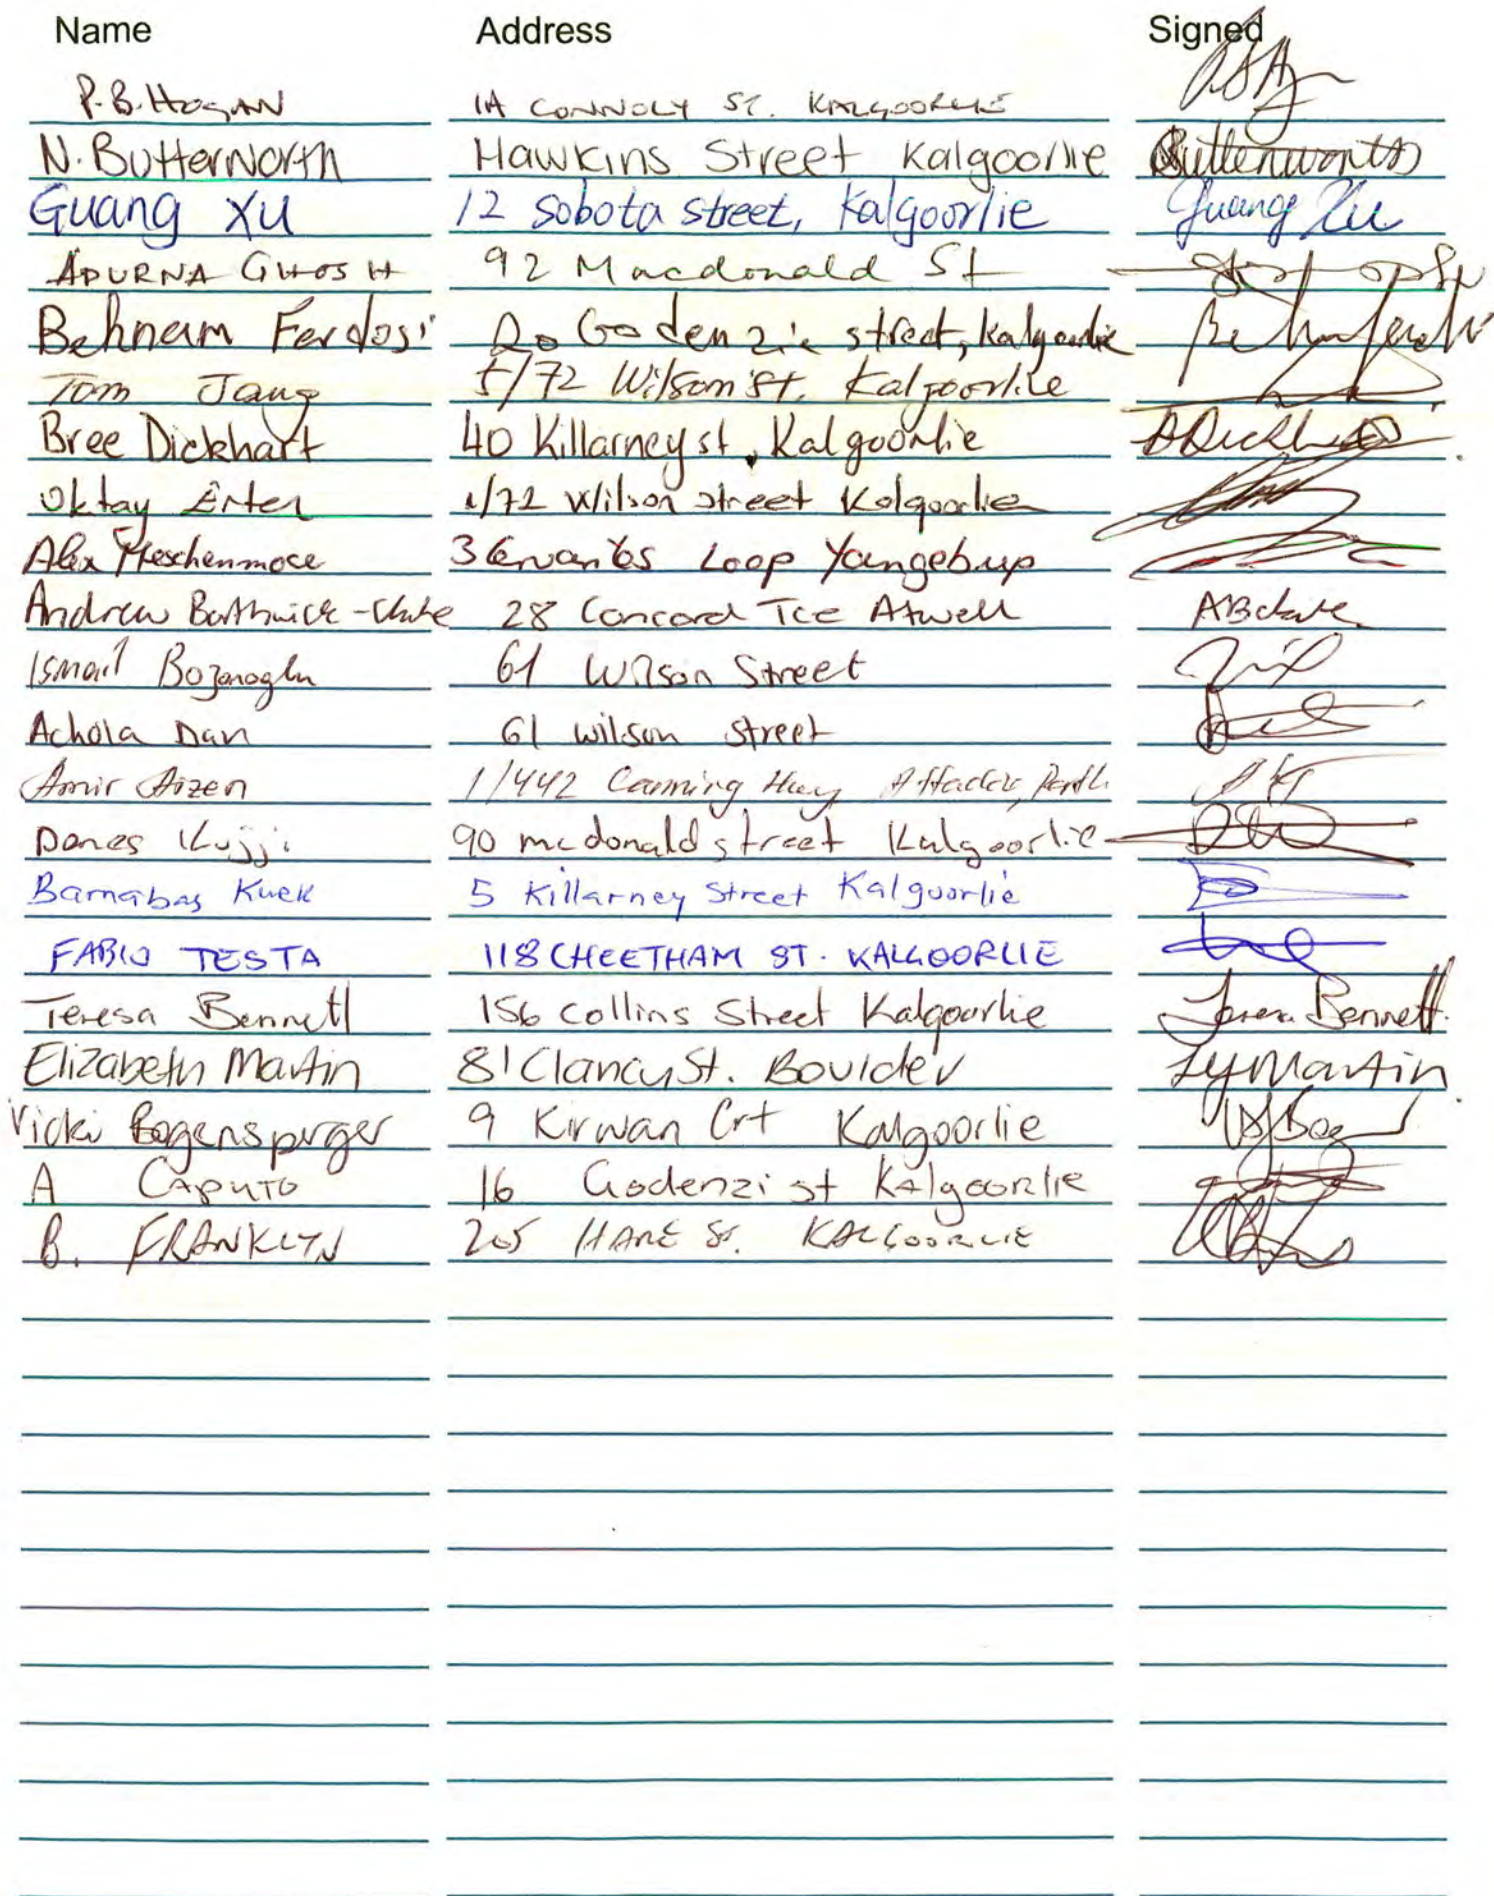 Name Address Signed
P.B. HOGAN 1A CONNOLY ST. KALGOORLIE
N. Butterworth Hawkins Street Kalgoorlie Butterworth
Guang Xu 12 Sobota street, Kalgoorlie Guang Xu
APURNA GHOSH 92 Macdonald St
Behnam Ferdosi Godenzie street, Kalgoorlie
Tom Jang 5/72 Wilson St. Kalgoorlie
Bree Dickhart 40 Killarney st, Kalgoorlie
Oktay Erten 1/72 Wilson street Kalgoorlie
Alex 3 Cervantes Loop Yangebup
Andrew Borthwick-Clarke 28 Concord Tce Atwell ABclarke
Ismail Bozanoglu 61 Wilson Street
Achola Dan 61 Wilson Street
Amir Aizen 1/442 Canning Hwy Attadale, Perth
90 mcdonald street Kalgoorlie
Barnabas Kuek 5 Killarney Street Kalguorlie
FABIO TESTA 118 CHEETHAM ST. KALGOORLIE
Teresa Bennett 156 Collins Street Kalgoorlie Teresa Bennett
Elizabeth Martin 81 Clancy St. Boulder Martin
Vicki Bogensperger 9 Kirwan Crt Kalgoorlie
A CAPUTO 16 Godenzi st Kalgoorlie
B. FRANKLYN 205 HARE St. KALGOORLIE